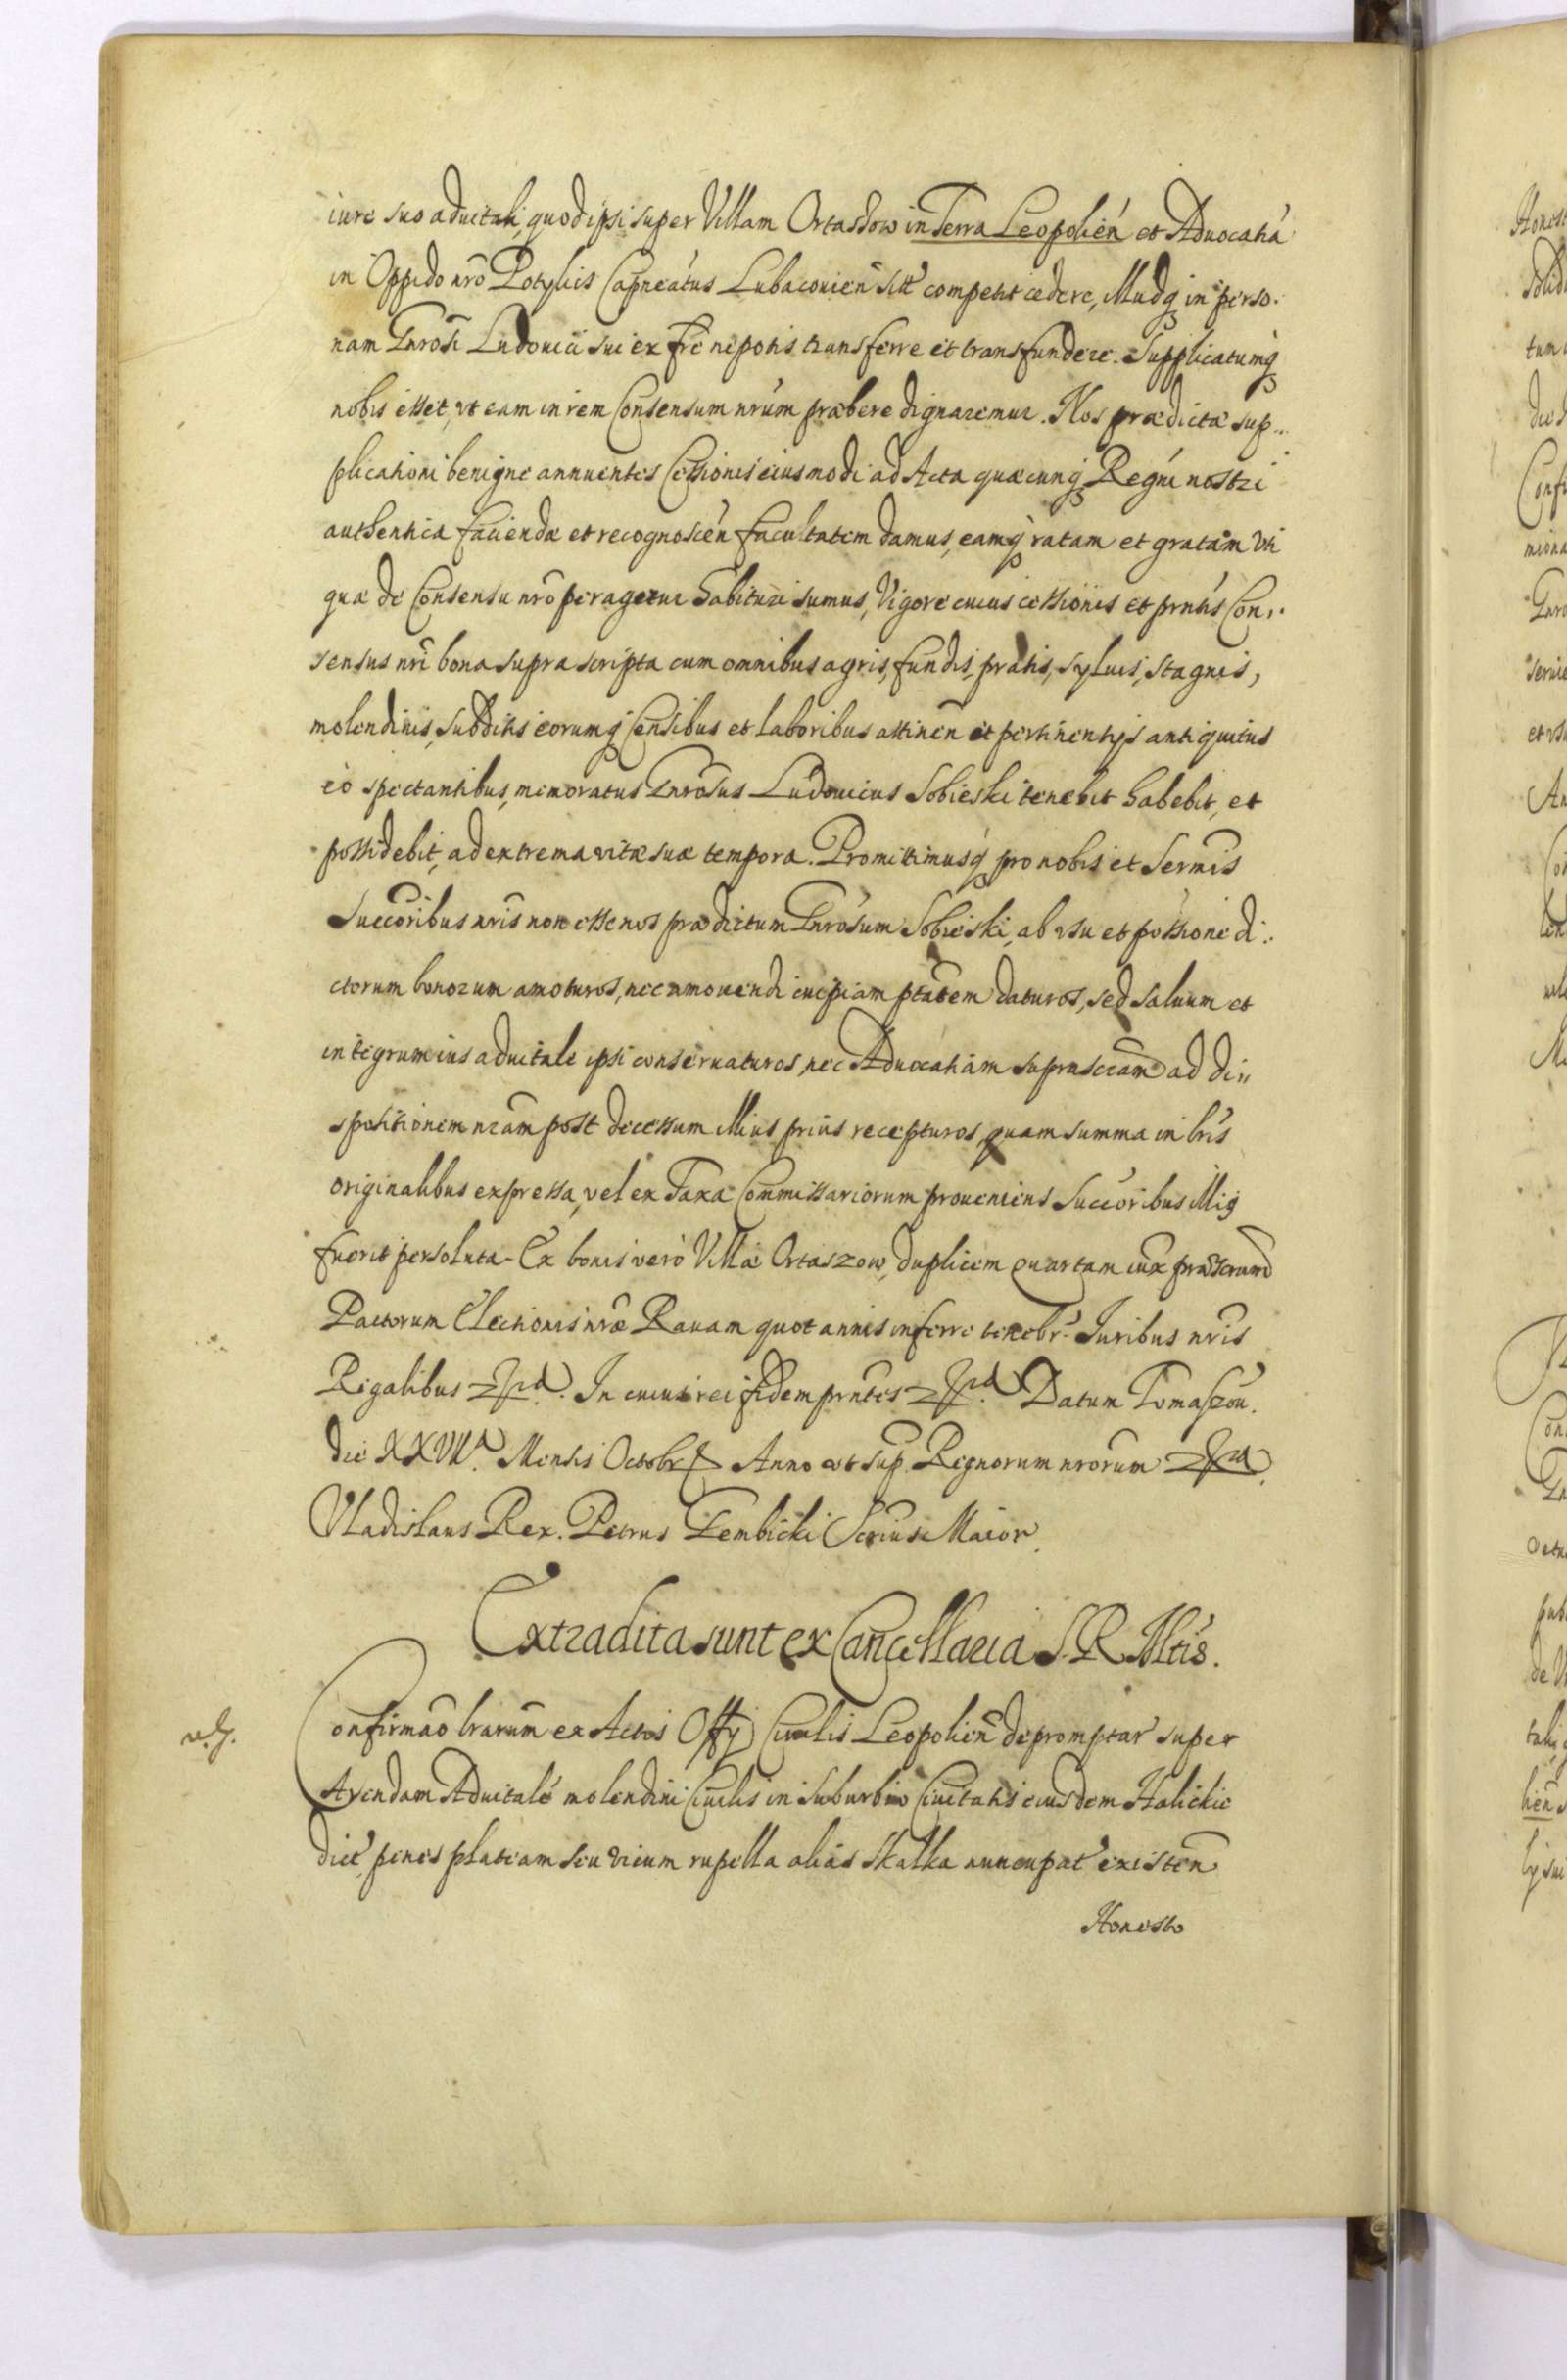 iure suo aduitali, quod ipsi super Villam Ortasdow in Terra Leopolień et Aduocatiá
in Oppido nro Potylicz Capneatus Lubaconień sitt competit cedere, illudq in perso-
nam Gnrosi Ludouici sui ex fre nepotis transferre et transfundere. Supplicatumq
nobis esset, vt eam in rem Consensum nrum præbere dignaremur. Nos prædictæ sup-
plicationi benigne annuentes Cessionis eiusmodi ad Acta quæcunq Regni nostri
authentica faciendæ et recognoscen facultatem damus, eamq ratam et gratam vti
quæ de Consensu nro peragetur habituri sumus, Vigore cuius cessionis et prntis Con-
sensus nri bona supra scripta cum omnibus agris, fundis, pratis, syluis, stagnis,
molendinis, subditis eorumq Censibus et laboribus attinen et pertinentijs antiquitus
eò spectantibus, memoratus Gnrosus Ludouicus Sobieski tenebit habebit, et
possidebit, ad extrema vitæ suæ tempora. Promittimusq pro nobis et Sermis
Succoribus nris non esse nos prædictum Gnrosum Sobieski, ab vsu et possione di-
ctorum bonorum amoturos, nec amouendi cuipiam ptatem daturos, sed saluum et
integrum ius aduitale ipsi conseruaturos, nec Aduocatiam suprascram ad di-
spositionem nram post decessum illius prius recepturos, quam summa in lris
originalibus expressa, vel ex Taxa Commissariorum proueniens Succoribus illig
fuerit persoluta. Ex bonis verò Villæ Ortaszow, duplicem quartam iux præscrum
Pactorum Electionis nræ Rauam quotannis inferre tenebr. Iuribus nris
Regalibus etc. In cuius rei fidem prntes etc. Datum Tomaszou.
die XXVII. Mensis Octobr Anno vt sup Regnorum nrorum etc.
Vladislaus Rex. Petrus Gembicki Scrius Maior.
Extradita sunt ex Cancellaria S. R. Mtis.
Confirmao lrarum ex Actis Offy Ciuilis Leopolień depromptar super
Arendam Aduitalé molendini Ciuilis in Suburbio Ciuitatis eiusdem Halickie
dict penes plateam seu vicum rupella alias Skalka nuncupat existen
Honesto